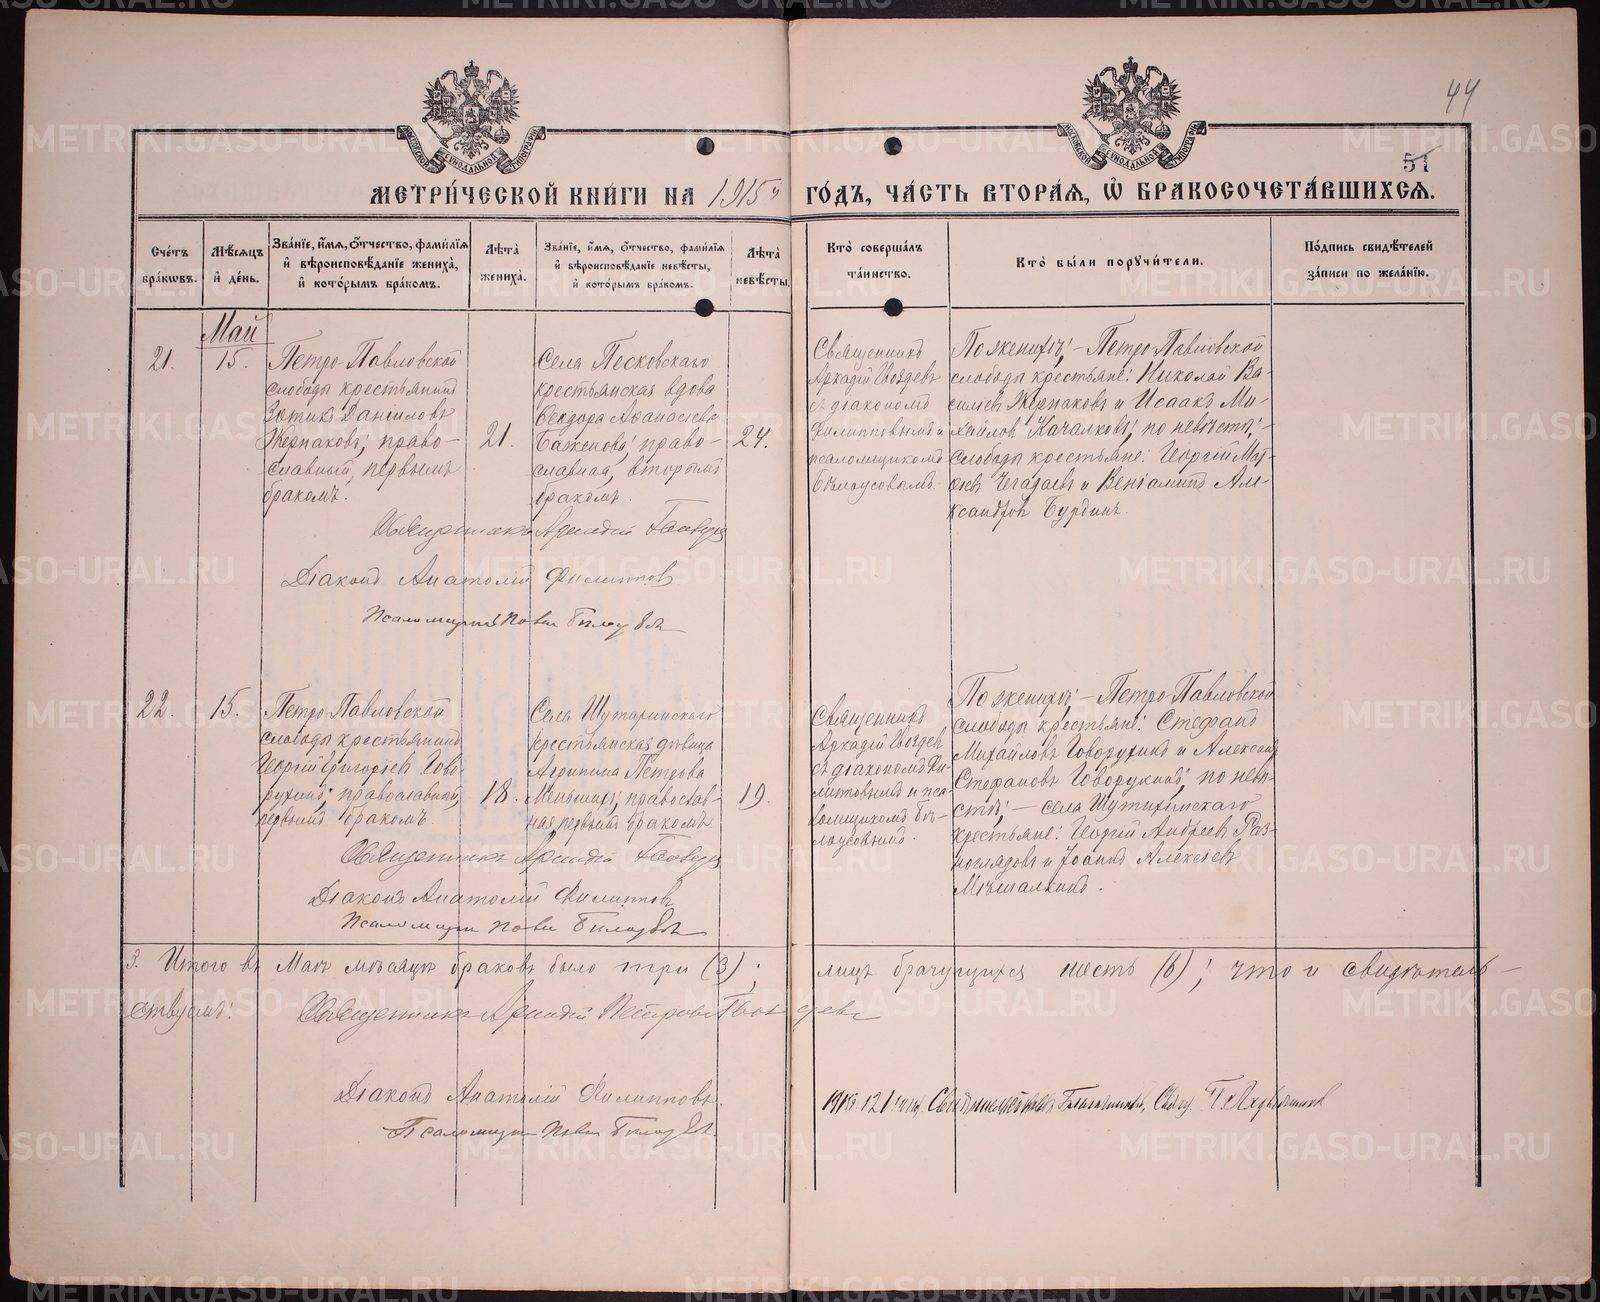 44
51
МЕТРИ́ЧЕСКОЙ КНИ́ГИ НА 1915й ГО́ДЪ, ЧА́СТЬ ВТОРА́Я, Ѡ҆ БРАКОСОЧЕТА́ВШИХСЯ.
Сче́тъ бра́ковъ.
Мѣ́сяцъ и҆ де́нь.
Зва́нїе, и҆́мя, ѻ҆́тчество, фами́лїя и҆ вѣроисповѣ́данїе жениха̀, и҆ кото́рымъ бра́комъ.
Лѣ́та жениха̀.
Зва́нїе, и҆́мя, ѻ҆́тчество, фами́лїя и҆ вѣроисповѣ́данїе невѣ́сты, и҆ кото́рымъ бра́комъ.
Лѣ́та невѣ́сты.
Кто̀ соверша́лъ та́инство.
Кто̀ бы́ли поручи́тели.
По́дпись свидѣ́телей за́писи по жела́нїю.
Май
21.
15.
Петро-Павловской
слободы крестьянинъ
Зотикъ Даниловъ
Жерпаковъ, право-
славный, первымъ
бракомъ.
21.
Села Песковскаго
крестьянская вдова
Ѳеодора Аѳанасіева
Баженова, право-
славная, вторымъ
бракомъ.
24.
Священникъ
Аркадій Гвоздевъ
съ діакономъ
Филипповымъ и
псаломщикомъ
Бѣлоусовымъ.
По женихѣ: – Петро-Павловской
слободы крестьяне: Николай Ва-
сильев Жерпаковъ и Исаакъ Ми-
хайлов Качалковъ; по невѣстѣ: –
слободы крестьяне: Георгій
и Веніаминъ Але-
ксандров Бурдинъ.
Священникъ Аркадій Гвоздев
Діаконъ Анатолій Филиппов
Псаломщикъ Павел Бѣлоусов
22.
15.
Петро-Павловской
слободы крестьянинъ
Георгій Григоріев Гово-
рухинъ, православный,
первымъ бракомъ
18.
Села Шутинскаго
крестьянская дѣвица
Агрипина Петрова
Меньшихъ, православ-
ная, первымъ бракомъ
19.
Священникъ
Аркадій Гвоздев
съ діакономъ Фи-
липповымъ и пса-
ломщикомъ Бѣ-
лоусовымъ.
По женихѣ: – Петро-Павловской
слободы крестьяне: Стефанъ
Михайловъ Говорухинъ и Александр
Стефановъ Говорухинъ; по невѣ-
стѣ: – села Шутинскаго
крестьяне: Георгій Андреев Раз-
поглядовъ и Іоаннъ Алексѣевъ
Мѣшалкинъ.
Священникъ Аркадій Гвоздев
Діаконъ Анатолій Филиппов
Псаломщик Павел Бѣлоусовъ
Итого въ Маѣ мѣсяцѣ браковъ было три (3); лицъ брачущихся шесть (6); что и свидѣтель-
ствуемъ:
Священникъ Аркадій Петровъ Гвоздевъ
Діаконъ Анатолій Филипповъ.
Псаломщик Павел Бѣлоусов.
METRIKI.GASO-URAL.RU